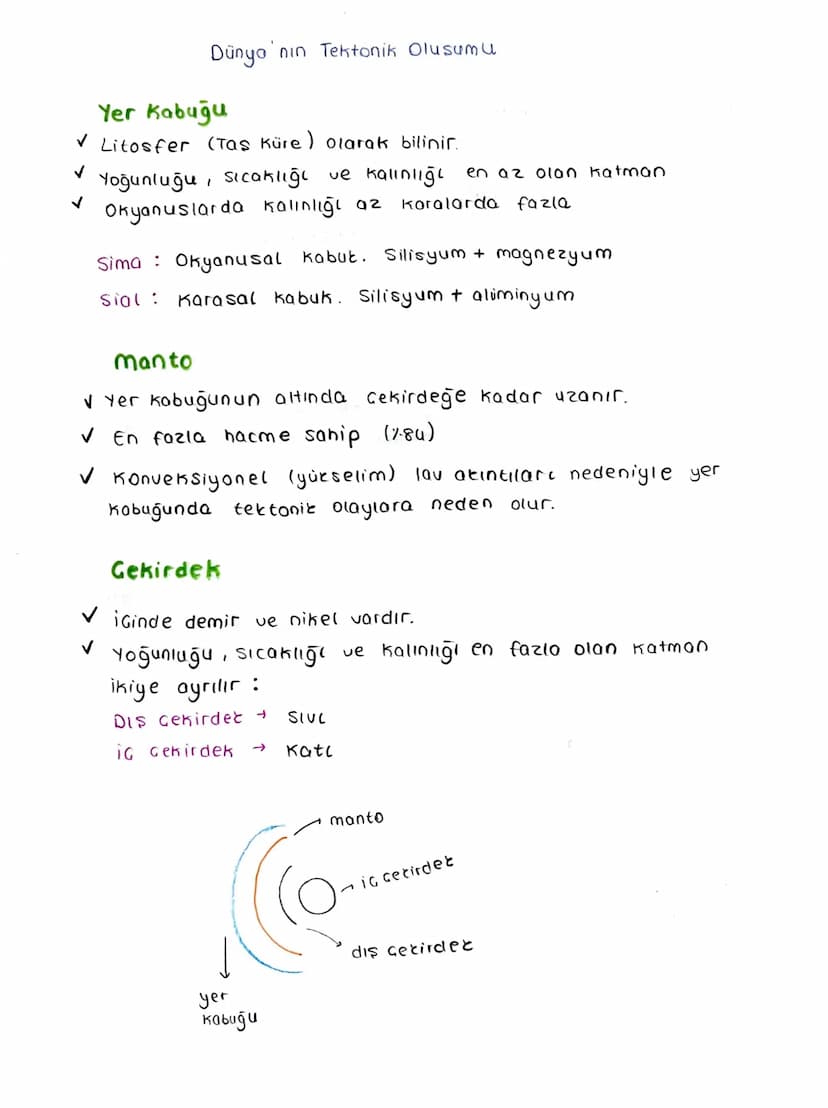 Dünya'nın Tektonik Olusumu
Yer Kabuğu
✓ Litosfer (Tas Küre) olarak bilinir.
✓ Yoğunluğu, sıcaklığı ve kalınlığı en az olan katman
✓ Okyanuslarda kalınlığı az karalarda fazla
Sima : Okyanusal kabuk. Silisyum + magnezyum
Sial : Karasal kabuk. Silisyum + alüminyum
Manto
✓ Yer kabuğunun altında cekirdeğe kadar uzanır.
✓ En fazla hacme sahip (%84)
✓ Konveksiyonel (yükselim) lav akıntıları nedeniyle yer
kabuğunda tektonik olaylara neden olur.
Cekirdek
✓ icinde demir ve nikel vardır.
✓ Yoğunluğu, sıcaklığı ve kalınlığı en fazla olan katman
ikiye ayrılır :
Dış cekirdek → Sıvı
iç cekirdek → Katı
manto
iç cekirdek
dış cekirdek
yer
kabuğu